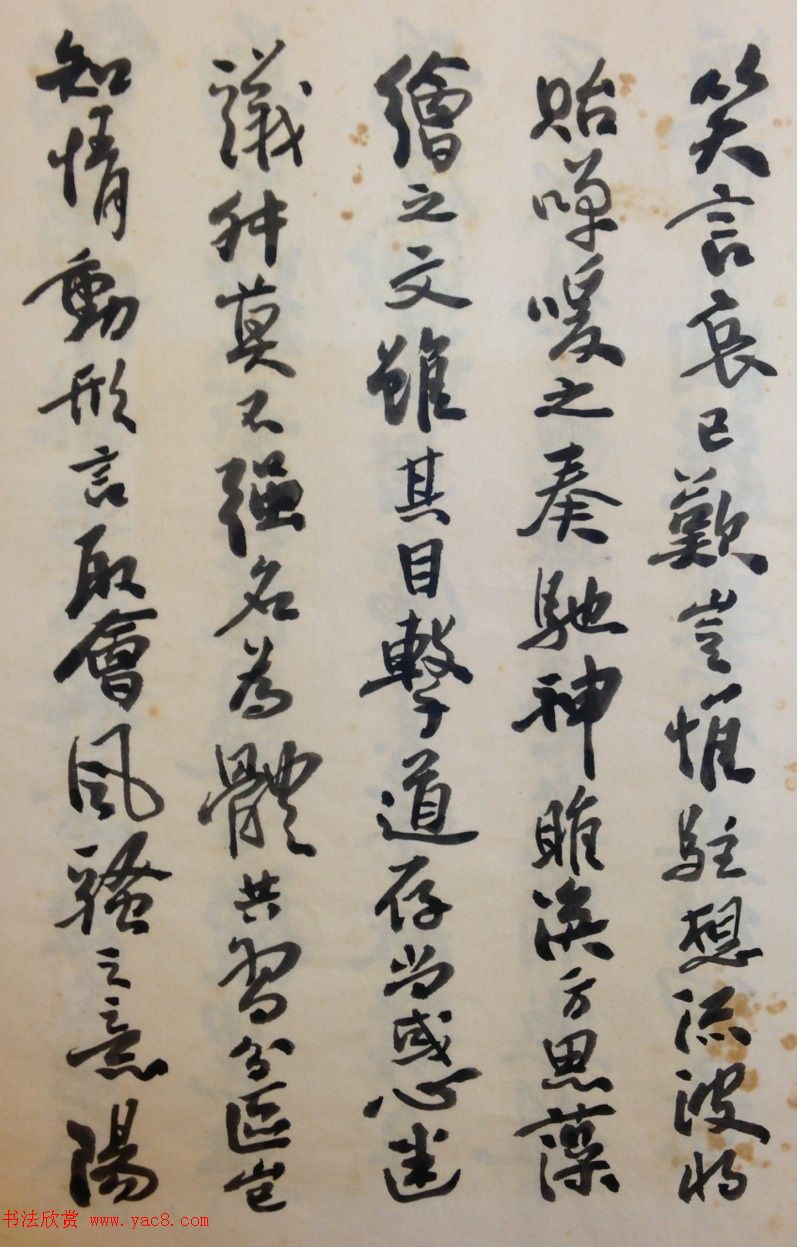 笑言哀已歎豈惟駐想流波將
貽嘽喛之奏馳神睢渙方思藻
繪之文雖其目擊道存尚或心迷
議舛莫不强名為體共習分區豈
知情動形言取會風騷之意陽
书法欣赏 www.yac8.com